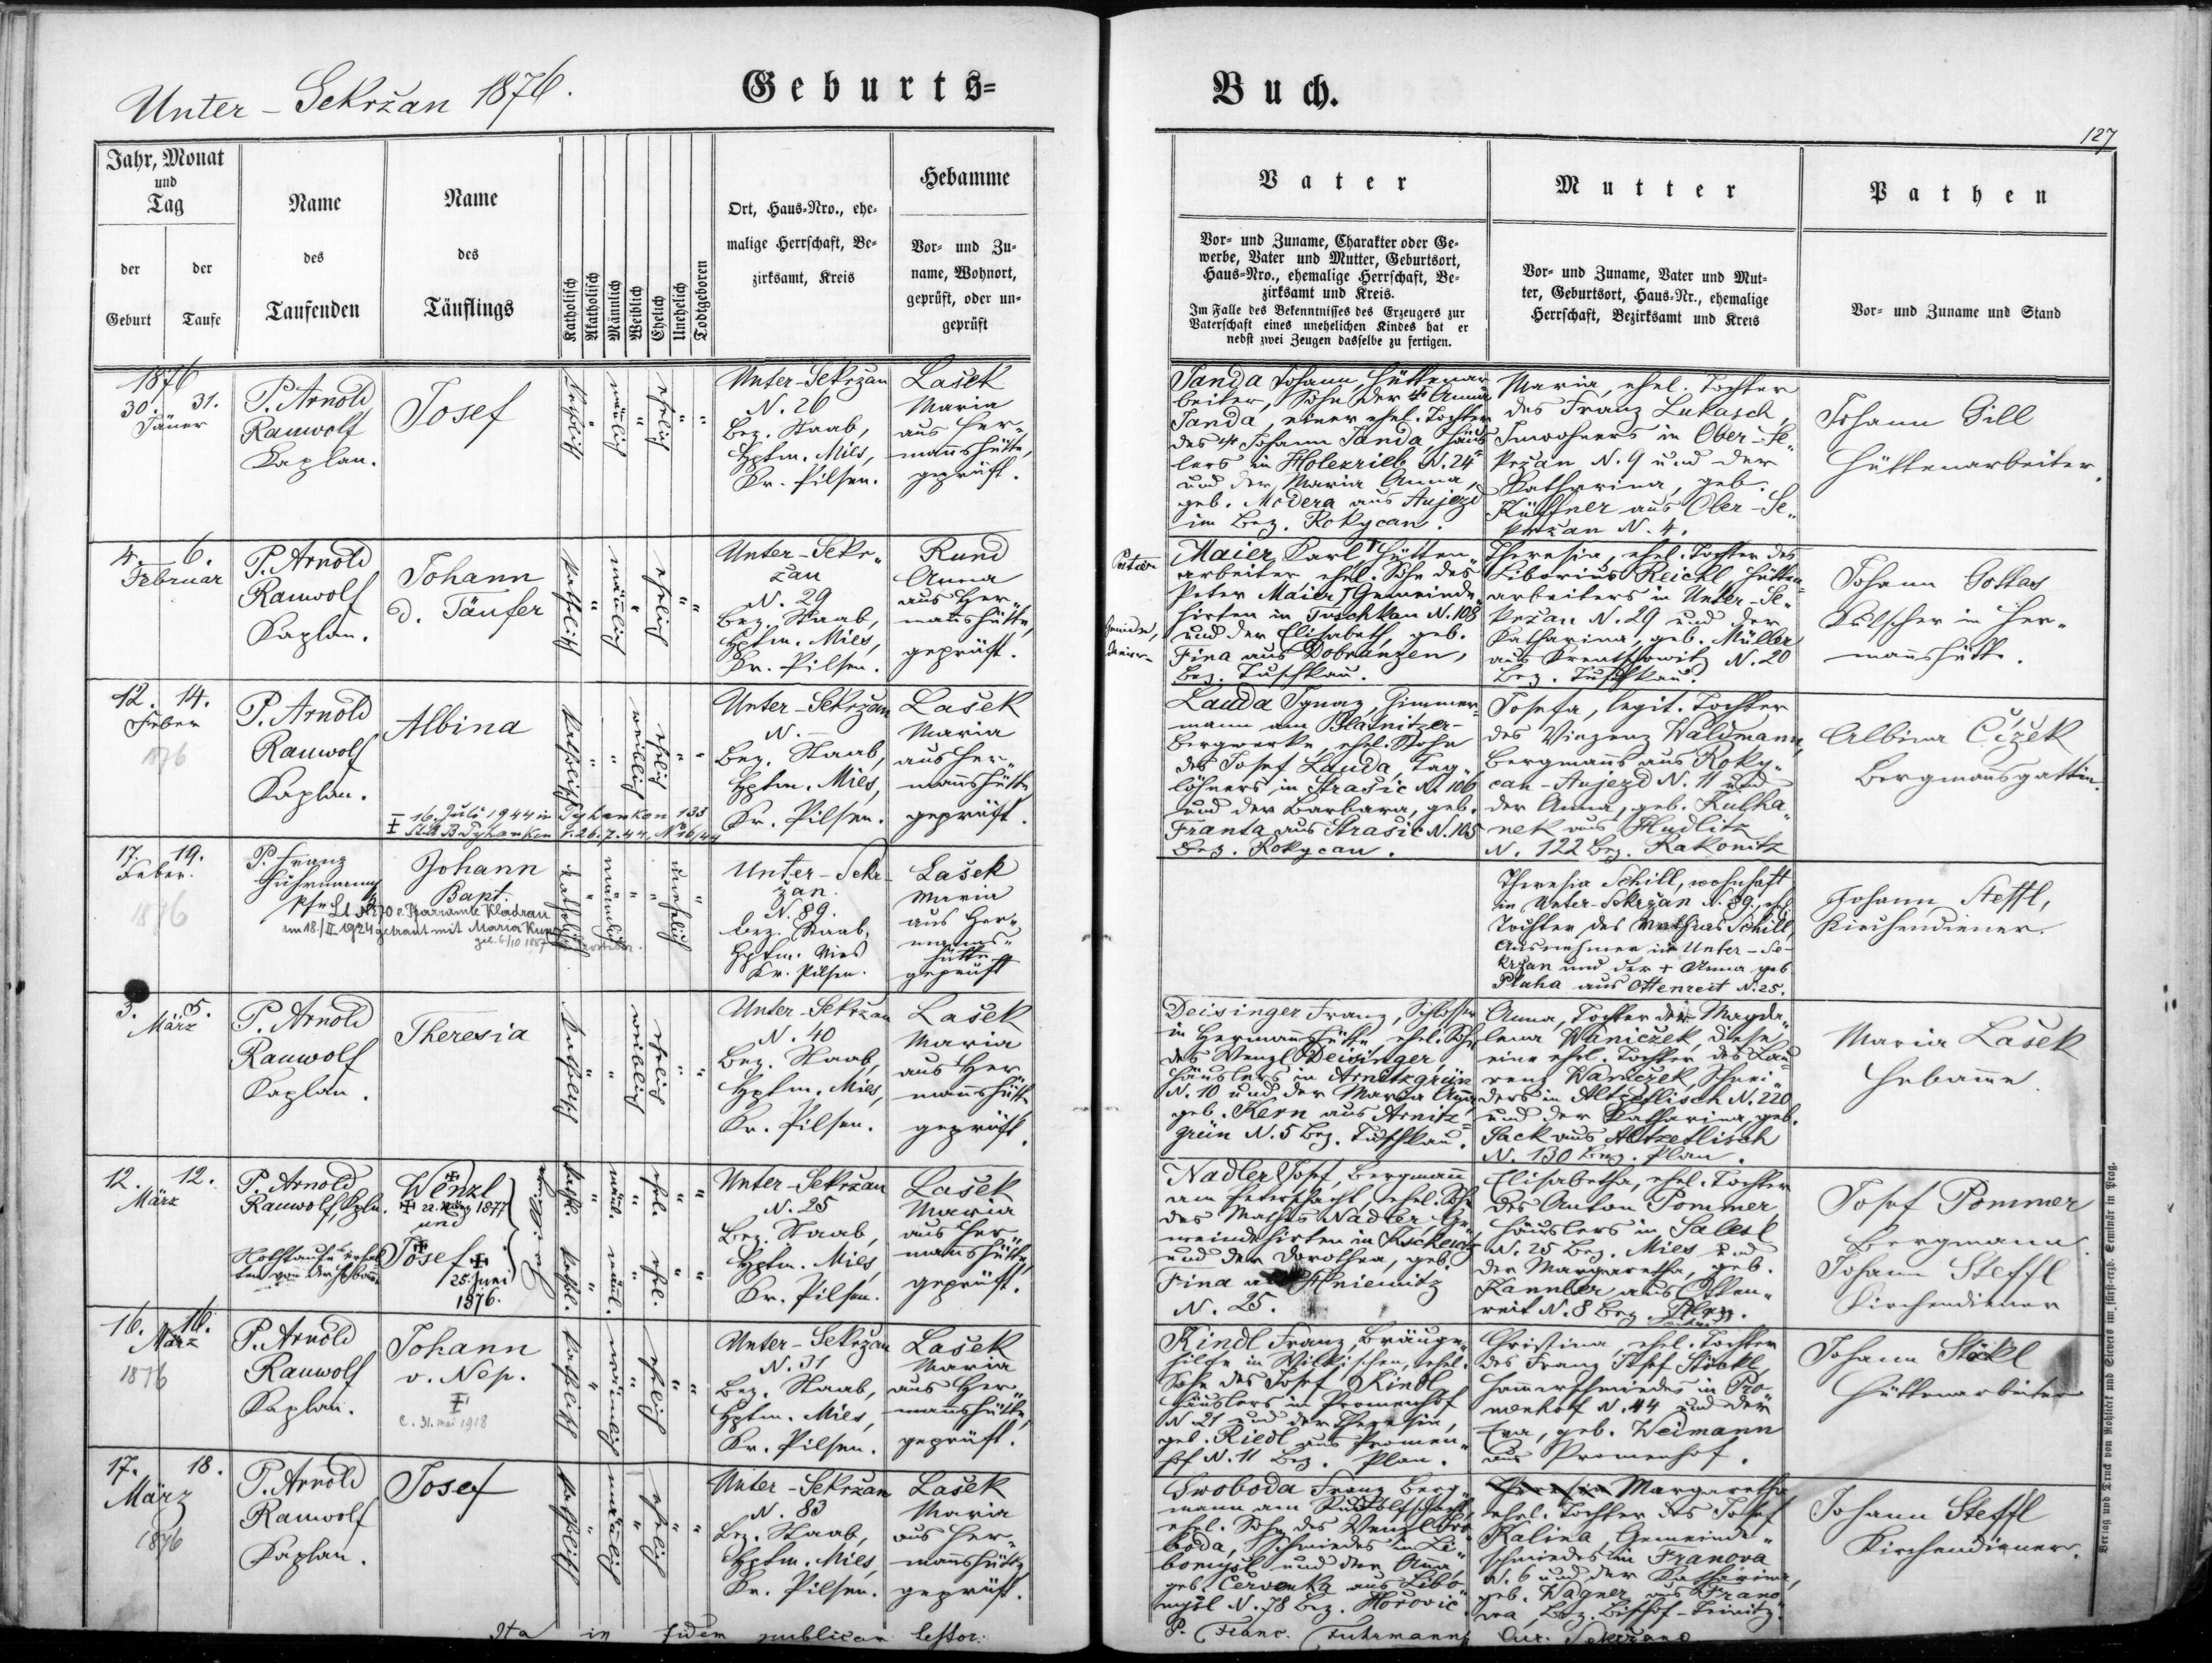 Unter-Sekržan 1876.
Geburts=
Buch.
127
Jahr, Monat
und
Tag
der
Geburt
der
Taufe
Name
des
Taufenden
Name
des
Täuflings
Katholisch
Akatholisch
Männlich
Weiblich
Ehelich
Unehelich
Todtgeboren
Ort, Haus-Nro., ehe-
malige Herrschaft, Be-
zirksamt, Kreis
Hebamme
Vor- und Zu-
name, Wohnort,
geprüft, oder un-
geprüft
Vater
Vor- und Zuname, Charakter oder Ge-
werbe, Vater und Mutter, Geburtsort,
Haus-Nro., ehemalige Herrschaft, Be-
zirksamt und Kreis.
Im Falle des Bekenntnisses des Erzeugers zur
Vaterschaft eines unehelichen Kindes hat er
nebst zwei Zeugen dasselbe zu fertigen.
Mutter
Vor- und Zuname, Vater und Mut-
ter, Geburtsort, Haus-Nr., ehemalige
Herrschaft, Bezirksamt und Kreis
Pathen
Vor- und Zuname und Stand
1876
30. 31.
Jäner
P. Arnold
Rauwolf
Kaplan.
Josef
katholisch
männlich
ehelich
Unter-Sekržan
N. 26
Bez. Staab,
Hptm. Mies,
Kr. Pilsen.
Lašek
Maria
aus Her-
mannshütte,
geprüft.
Janda Johann, Hüttenar
beiter, Sohn der † Anna
Janda, einer ehel. Tochter
des † Johann Janda, Häus
lers in Holezrieb N. 24
und der Maria Anna,
geb. Modera aus Aujezd
im Bez. Rokycan.
Maria, ehel. Tochter
des Franz Lukasch,
Inwohners in Ober-Se-
kržan N. 9 und der
Katharina, geb.
Küffner aus Ober-Se-
kržan N. 4.
Johann Gill
Hüttenarbeiter.
4. 6.
Februar
P. Arnold
Rauwolf
Kaplan.
Johann
d. Täufer
katholisch
männlich
ehelich
Unter-Sekr-
žan
N. 29
Bez. Staab,
Hptm. Mies,
Kr. Pilsen.
Rund
Anna
aus Her-
mannshütte,
geprüft.
Maier Karl, Hütten-
arbeiter, ehel. Sohn des
Peter Maier, Gemeinde-
hirten in Tuschkau N. 108
und der Elisabeth, geb.
Fina aus Dobranzen,
Bez. Tuschkau.
Theresia, ehel. Tochter des
Liborius Reichl, Hütten-
arbeiters in Unter-Se-
kržan N. 29 und der
Katharina, geb. Müller
aus Krentschowitz N. 20
Bez. Tuschkau.
Johann Gottas
Kutscher in Her-
mannshütte.
12. 14.
Feber
1876
P. Arnold
Rauwolf
Kaplan.
Albina
katholisch
weiblich
ehelich
Unter-Sekržan
N. —
Bez. Staab,
Hptm. Mies,
Kr. Pilsen.
Lašek
Maria
aus Her-
mannshütte
geprüft.
16. Juli 1944 in
Lauda Ignaz, Zimmer-
mann am Blatnitzer-
Bergwerke, ehel. Sohn
des Josef Lauda, Tag-
löhners in Strasic N. 106
und der Barbara, geb.
Franta aus Strasic N. 105
Bez. Rokycan.
Josefa, legit. Tochter
des Vinzenz Waldmann,
Bergmanns aus Roky-
can-Aujezd N. 11 und
der Anna, geb. Kulha-
nek aus Hudlitz
N. 122 Bez. Rakonitz
Albina Čížek
Bergmannsgattin.
17. 19.
Feber.
1876
P. Franz
Fuhrmann
Johann
Bapt.
katholisch
männlich
unehelich
Unter-Sekr-
žan.
N. 89.
Bez. Staab,
Hptm. Mies
Kr. Pilsen.
Lašek
Maria
aus Her-
manns-
hütte
geprüft
Pfarramte Kladrau
am 18./II 1924 getraut mit Maria
Theresia Schill, wohnhaft
in Unter-Sekržan N. 89., ehel.
Tochter des Mathias Schill,
Ausnehmer in Unter-Se-
kržan und der † Anna geb.
Plaha aus Ottenreit N. 25.
Johann Steffl,
Kirchendiener.
3. 5.
März
P. Arnold
Rauwolf
Kaplan.
Theresia
katholisch
weiblich
ehelich
Unter-Sekržan
N. 40
Bez. Staab,
Hptm. Mies,
Kr. Pilsen.
Lašek
Maria
aus Her-
mannshütte
geprüft.
Deisinger Franz, Schlosser
in Hermannshütte, ehel. Sohn
des Wenzl Deisinger,
Häuslers in Arnitzgrün
N. 10 und der Maria Anna
geb. Kern aus Arnitz-
grün N. 5 Bez. Tuschkau.
Anna, Tochter der Magda-
lena Waniczek, diese
eine ehel. Tochter des Lau-
renz Waniczek, Schnei-
ders in Altzetlisch N. 220
und der Katharina, geb.
Sack aus Altzetlisch
N. 130 Bez. Plan.
Maria Lašek
Hebamme
12. 12.
März
P. Arnold
Rauwolf, Kpln.
Nothtaufe erhal-
ten von der Hebamme
Wenzl
22. März 1877
und
Josef
25. Juni
1876.
kathl.
männl.
ehel.
kathol.
männl.
ehel.
Unter-Sekržan
N. 25
Bez. Staab,
Hptm. Mies,
Kr. Pilsen.
Lašek
Maria
aus Her-
mannshütte,
geprüft.
Nadler Josef, Bergmann
am Peterschacht, ehel. Sohn
des Mathes Nadler, Ge-
meindehirten in
und der Dorothea, geb.
Fina aus Hniemitz
N. 25.
Elisabetha, ehel. Tochter
des Anton Pommer
Häuslers in Salesl
N. 25 Bez. Mies und
der Margaretha, geb.
Kannler aus Otten-
reit N. 8 Bez. Plan.
Josef Pommer
Bergmann.
Johann Steffl
Kirchendiener
16. 16.
März
1876
P. Arnold
Rauwolf
Kaplan.
Johann
v. Nep.
31. mai 1918
katholisch
männlich
ehelich
Unter-Sekržan
N. 31
Bez. Staab,
Hptm. Mies,
Kr. Pilsen.
Lašek
Maria
aus Her-
mannshütte
geprüft.
Kindl Franz, Bräuge-
hilfe in Wilkischen, ehel.
Sohn des Josef Kindl
Häuslers in Promenhof
N. 21 und der Theresia,
geb. Riedl aus Promen-
hof N. 11 Bez. Plan.
Christina, ehel. Tochter
des Franz Josef Stöckl,
Hammerschmiedes in Pro-
menhof N. 44 und der
Eva, geb. Weimann
aus Promenhof.
Johann Stöckl
Hüttenarbeiter
17. 18.
März
1876
P. Arnold
Rauwolf
Kaplan.
Josef
katholisch
männlich
ehelich
Unter-Sekržan
N. 83
Bez. Staab,
Hptm. Mies,
Kr. Pilsen.
Lašek
Maria
aus Her-
mannshütte
geprüft.
Swoboda Franz, Berg-
mann am Rudolfschacht
ehel. Sohn des Wenzl Swo-
boda, Schmiedes in Li-
bomysl und der Anna,
geb. Červenka aus Libo-
mysl N. 78 Bez. Hořovic
Theresia Margaretha
ehel. Tochter des Josef
Kalina, Gemeinde-
schmiedes in Franova
N. 6 und der Katharina,
geb. Wagner aus Frano-
wa, Bez. Bischof-Teinitz.
Johann Steffl
Kirchendiener.
Ita in fidem publicam testor:
P. Franc. Fuhrmann Cur. Sekržano
Verlag und Druck von Rohliček und Sievers im fürst-erzb. Seminär in Prag.